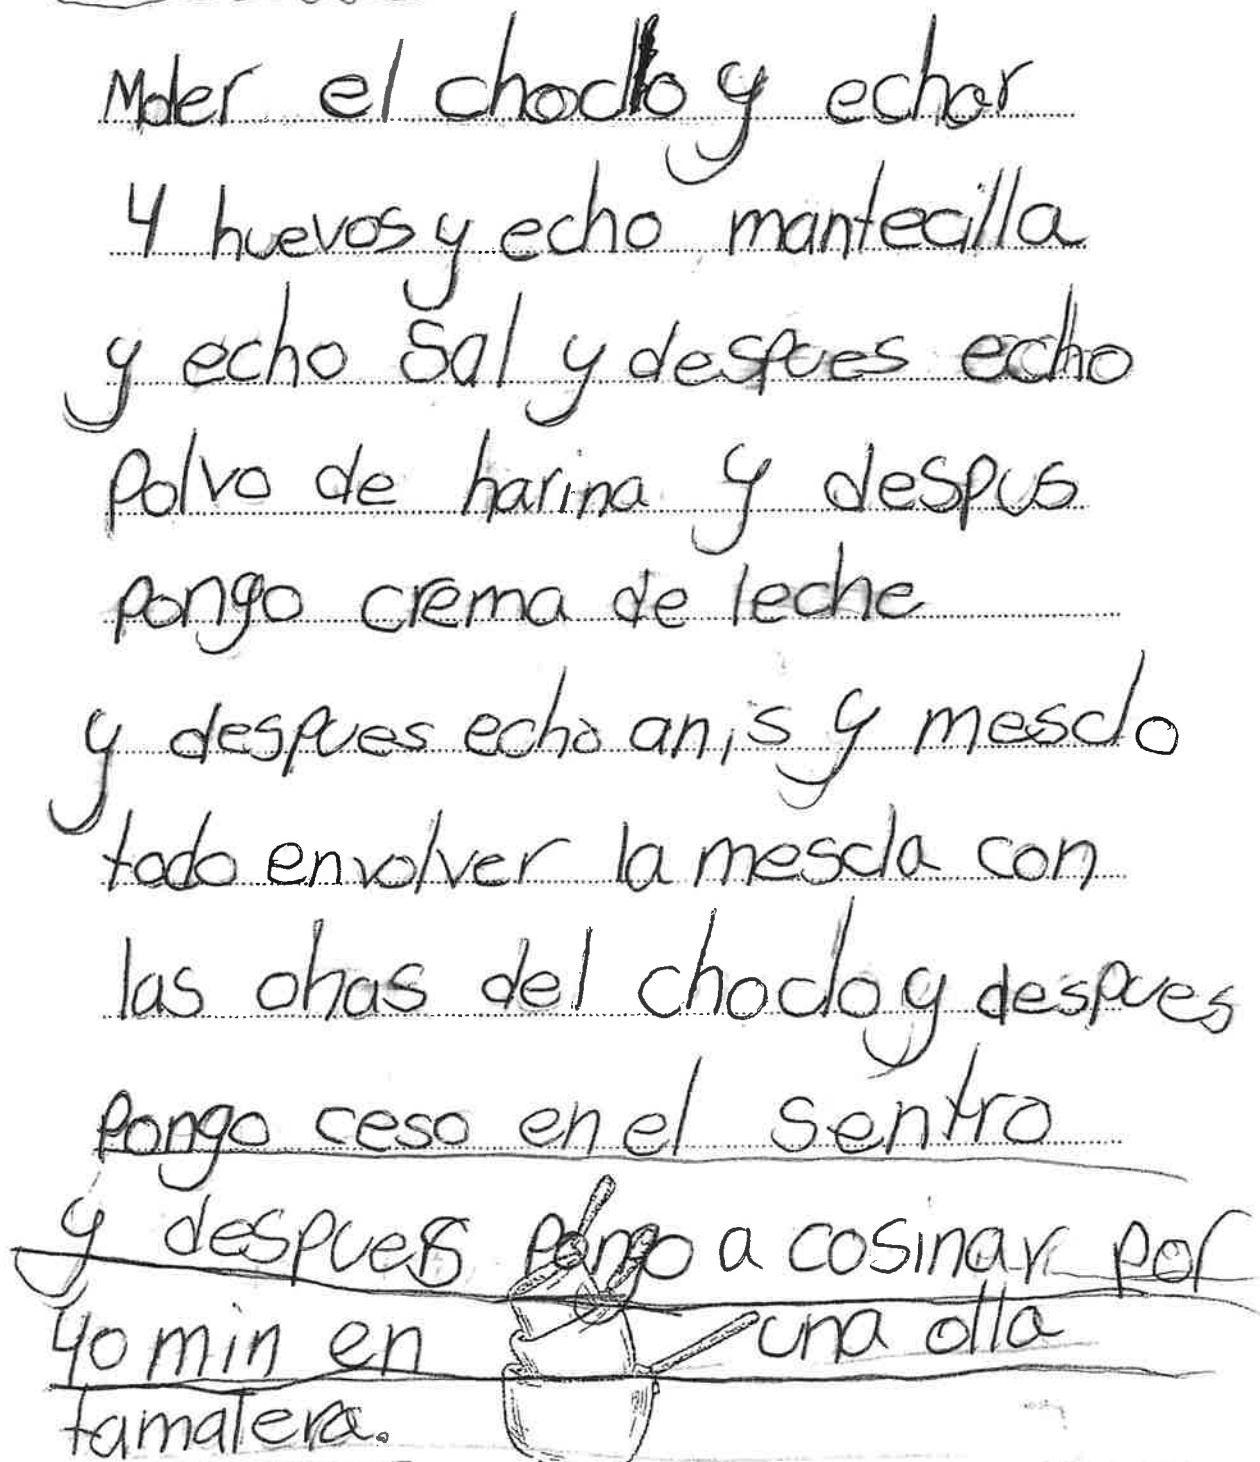 Moler el choclo y echar
4 huevos y echo mantecilla
y echo Sal y despues echo
polvo de harina y despus
pongo crema de leche
y despues echo anis y mesclo
todo envolver la mescla con
las ohas del choclo y despues
pongo ceso en el sentro
y despues pongo a cosinar por
40 min en una olla
tamalera.